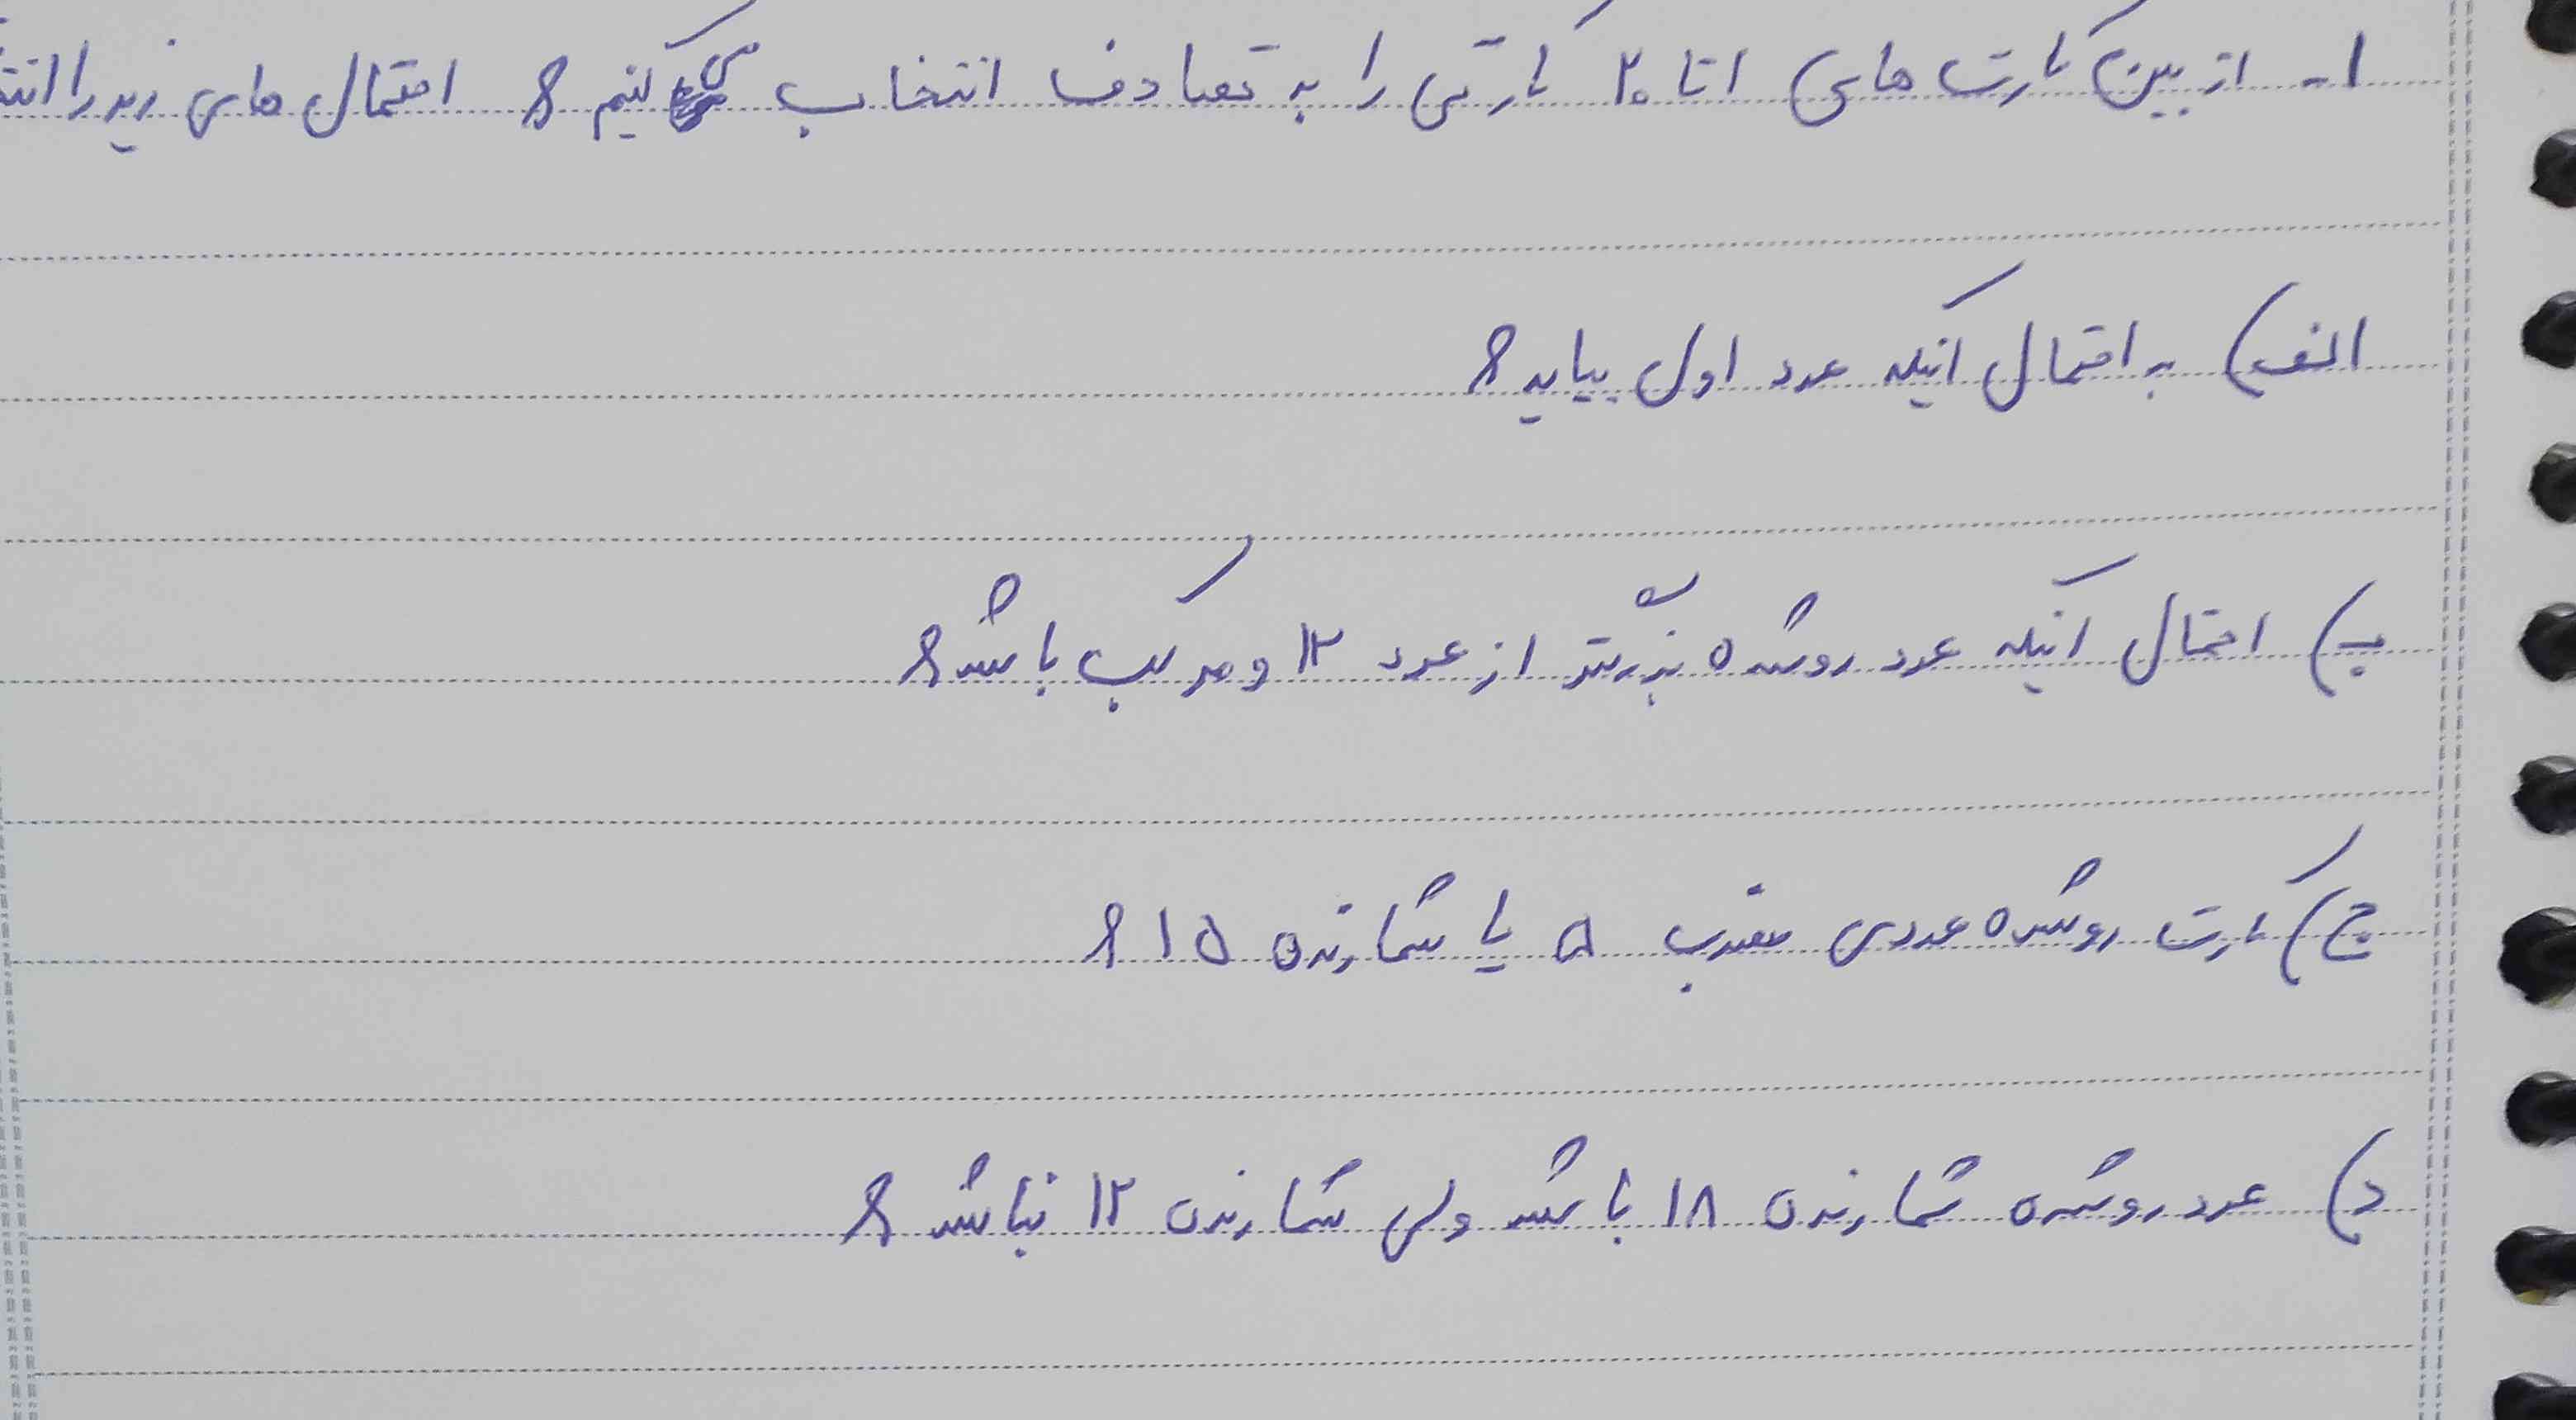 ۱- از بین کارت های ۱ تا ۲۰ کارتی را به تصادف انتخاب می کنیم : احتمال های زیر را
الف) به احتمال اینکه عدد اول بیاید :
ب) احتمال اینکه عدد رو شده بزرگتر از عدد ۱۲ و مرکب باشد :
ج) کارت رو شده عددی مضرب ۵ یا شمارنده ۱۵ :
د) عدد رو شده شمارنده ۱۸ باشد ولی شمارنده ۱۲ نباشد :